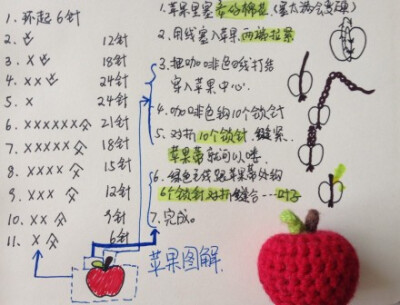 1. 环起6针
2. 12针
3. X 18针
4. XX 24针
5. X 24针
6. XXXXXX 21针
7. XXXXX 18针
8. XXXX 15针
9. XXX 12针
10. XX 9针
11. X 6针
1. 苹果里塞 棉花.(塞太满会变硬)
2. 用线塞入苹果两端拉紧
3. 把咖啡色线打结
穿入苹果中心.
4. 咖啡色钩10个锁针
5. 对折10个锁针缝紧.
苹果蒂就可以喽
6. 绿色毛线 苹果蒂处钩
6个锁针对折缝合……叶子
7. 完成。
苹果图解